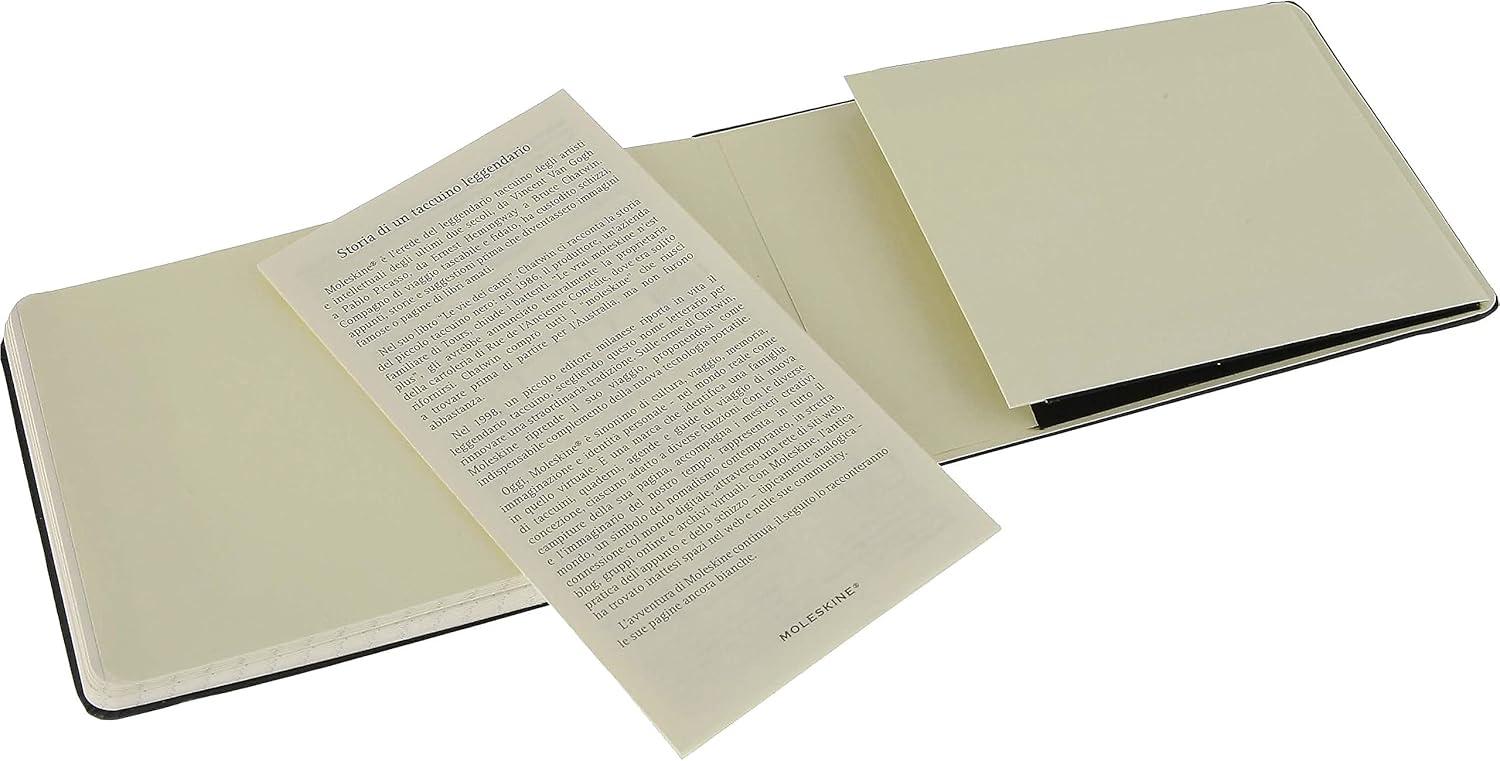 Storia di un taccuino leggendario
Moleskine® è l'erede del leggendario taccuino degli artisti
e intellettuali degli ultimi due secoli, da Vincent Van Gogh
a Pablo Picasso, da Ernest Hemingway a Bruce Chatwin.
Compagno di viaggio tascabile e fidato, ha custodito schizzi,
appunti, storie e suggestioni prima che diventassero immagini
famose o pagine di libri amati.
Nel suo libro "Le vie dei canti", Chatwin ci racconta la storia
del piccolo taccuino nero: nel 1986, il produttore, un'azienda
familiare di Tours, chiude i battenti. "Le vrai moleskine n'est
plus" gli avrebbe annunciato teatralmente la proprietaria
della cartoleria di Rue de l'Ancienne Comédie, dove era solito
rifornirsi. Chatwin comprò tutti i "moleskine" che riuscì
a trovare prima di partire per l'Australia, ma non furono
abbastanza.
Nel 1998, un piccolo editore milanese riporta in vita il
leggendario taccuino, scegliendo questo nome letterario per
rinnovare una straordinaria tradizione. Sulle orme di Chatwin,
Moleskine riprende il suo viaggio, proponendosi come
indispensabile complemento della nuova tecnologia portatile.
Oggi, Moleskine® è sinonimo di cultura, viaggio, memoria,
immaginazione e identità personale - nel mondo reale come
in quello virtuale. È una marca che identifica una famiglia
di taccuini, quaderni, agende e guide di viaggio di nuova
concezione, ciascuno adatto a diverse funzioni. Con le diverse
campiture della sua pagina, accompagna i mestieri creativi
e l'immaginario del nostro tempo: rappresenta, in tutto il
mondo, un simbolo del nomadismo contemporaneo, in stretta
connessione col mondo digitale, attraverso una rete di siti web,
blog, gruppi online e archivi virtuali. Con Moleskine, l'antica
pratica dell'appunto e dello schizzo – tipicamente analogica –
ha trovato inattesi spazi nel web e nelle sue community.
L'avventura di Moleskine continua, il seguito lo racconteranno
le sue pagine ancora bianche.
MOLESKINE®